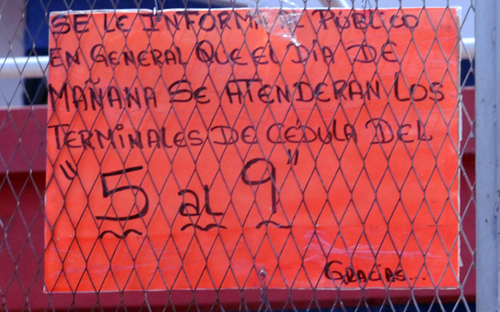 SE LE INFORMA AL PÚBLICO
EN GENERAL QUE EL DÍA DE
MAÑANA SE ATENDERAN LOS
TERMINALES DE CÉDULA DEL
"5 AL 9"
GRACIAS...